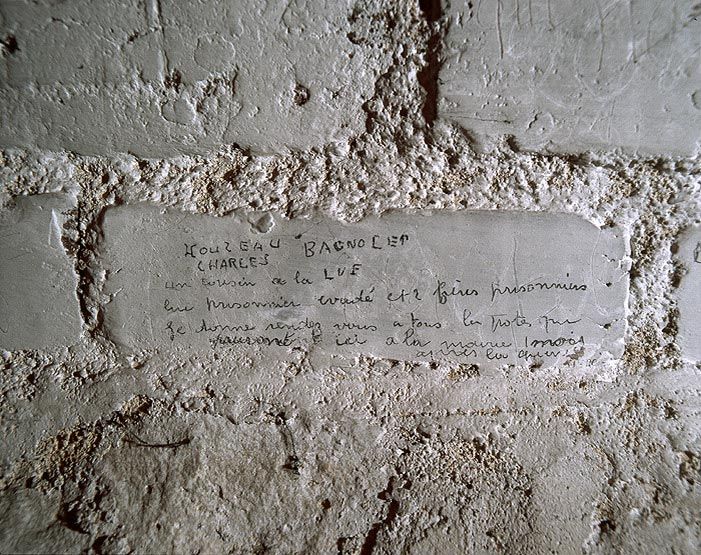 HOUZEAU BAGNOLET
CHARLES
un cousin a la LVF
lui prisonnier évadé et 2 frères prisonniers
Je donne rendez vous a tous les potes qui
ici a la mairie 1 mois
après la guerre